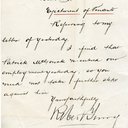 Ejectment of Tenants
Referring to my
letter of yesterday
I find that
Patrick McCormick is under our
employment yesterday, so you
need not take further steps
against him.
Yours faithfully
Robert